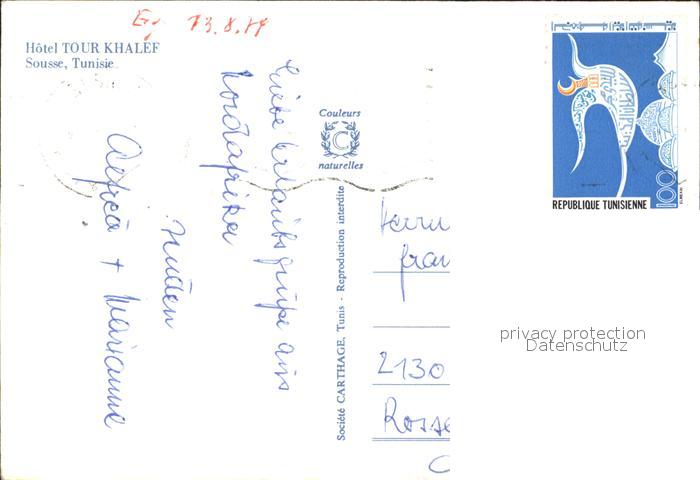 Er 13.8.79
Hôtel TOUR KHALEF
Sousse, Tunisie
Liebe Urlaubsgrüße aus
Nordafrika
senden
Alfred + Marianne
Couleurs
C
naturelles
Société CARTHAGE, Tunis - Reproduction interdite
REPUBLIQUE TUNISIENNE
100
Herrn
Frau
2130
Rosse
privacy protection
Datenschutz